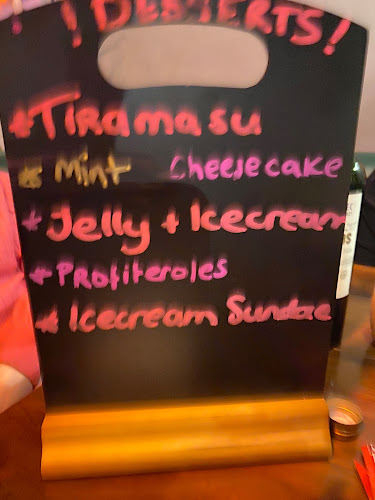 ! DESSERTS!
* Tiramasu
* Mint Cheesecake
* Jelly + Icecream
* Profiteroles
* Icecream Sundae